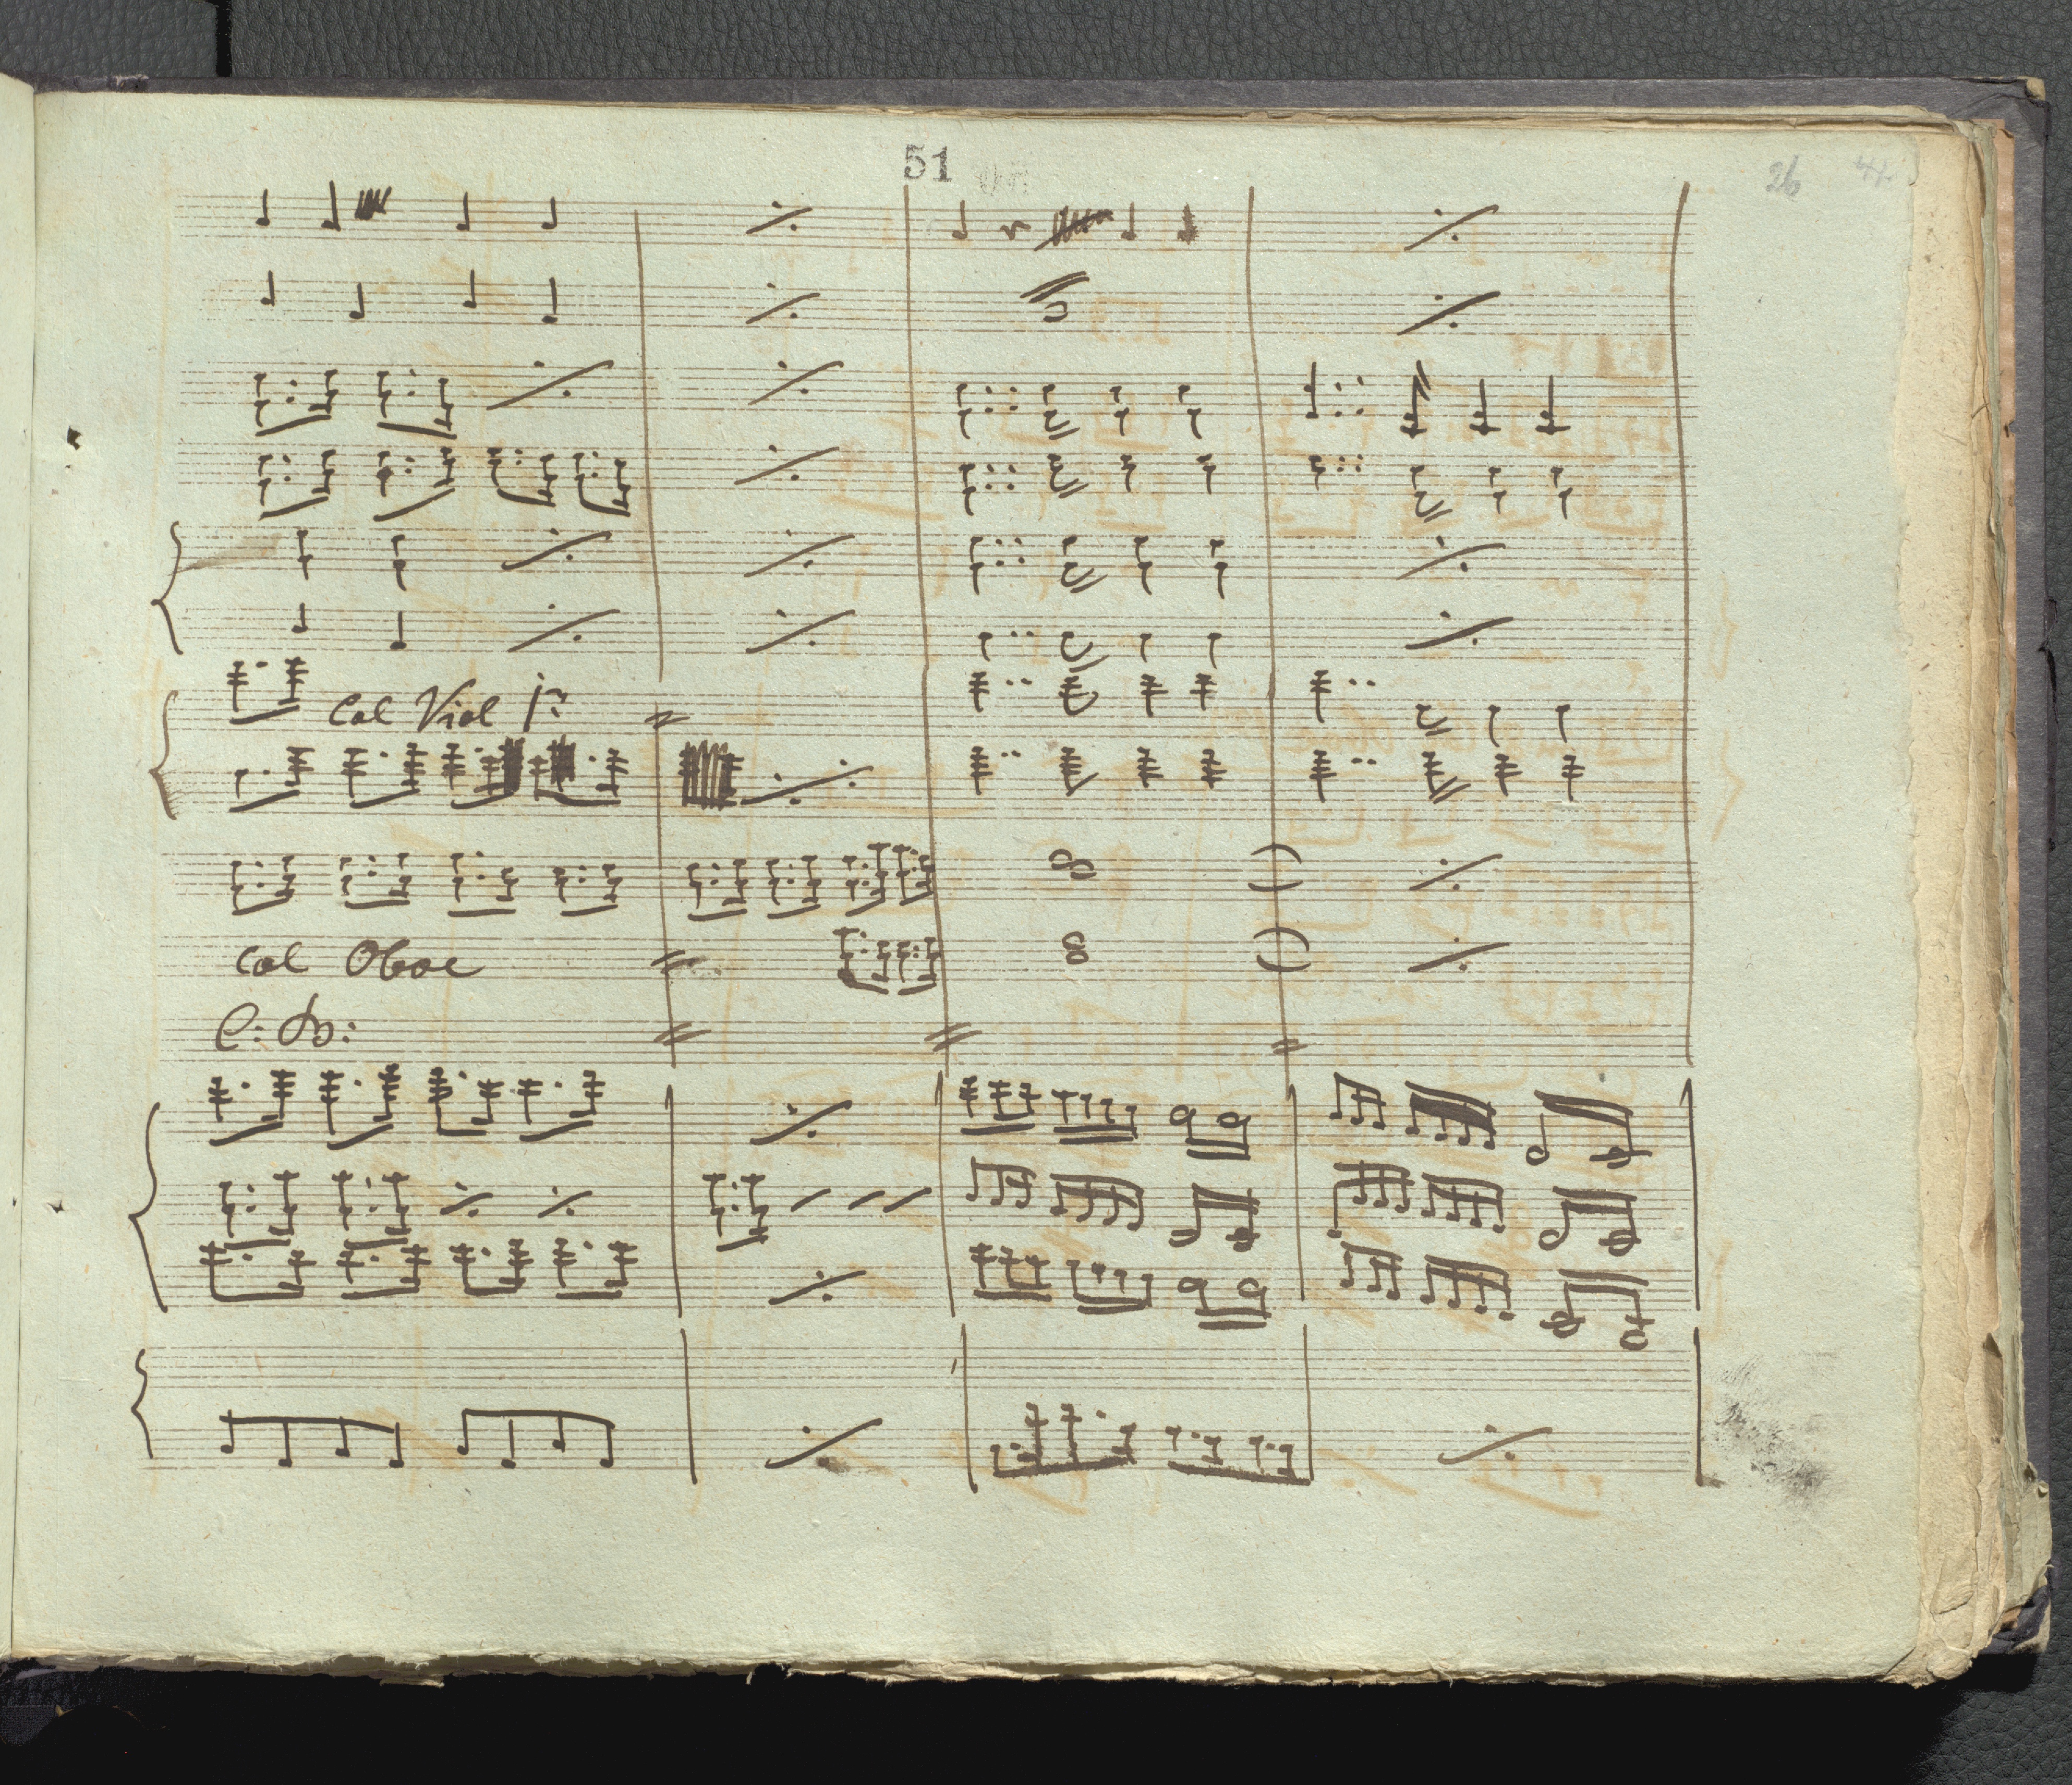 51
26
Col Viol 1º
Col Oboe
C: B: